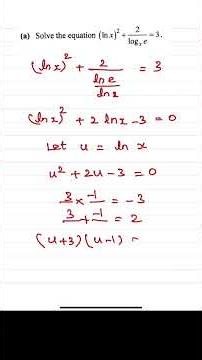 (a) Solve the equation (ln x)² + 2/logₓ e = 3.
(ln x)² + 2/(ln e/ln x) = 3
(ln x)² + 2 ln x - 3 = 0
Let u = ln x
u² + 2u - 3 = 0
3 × -1 = -3
3 + -1 = 2
(u+3)(u-1) =